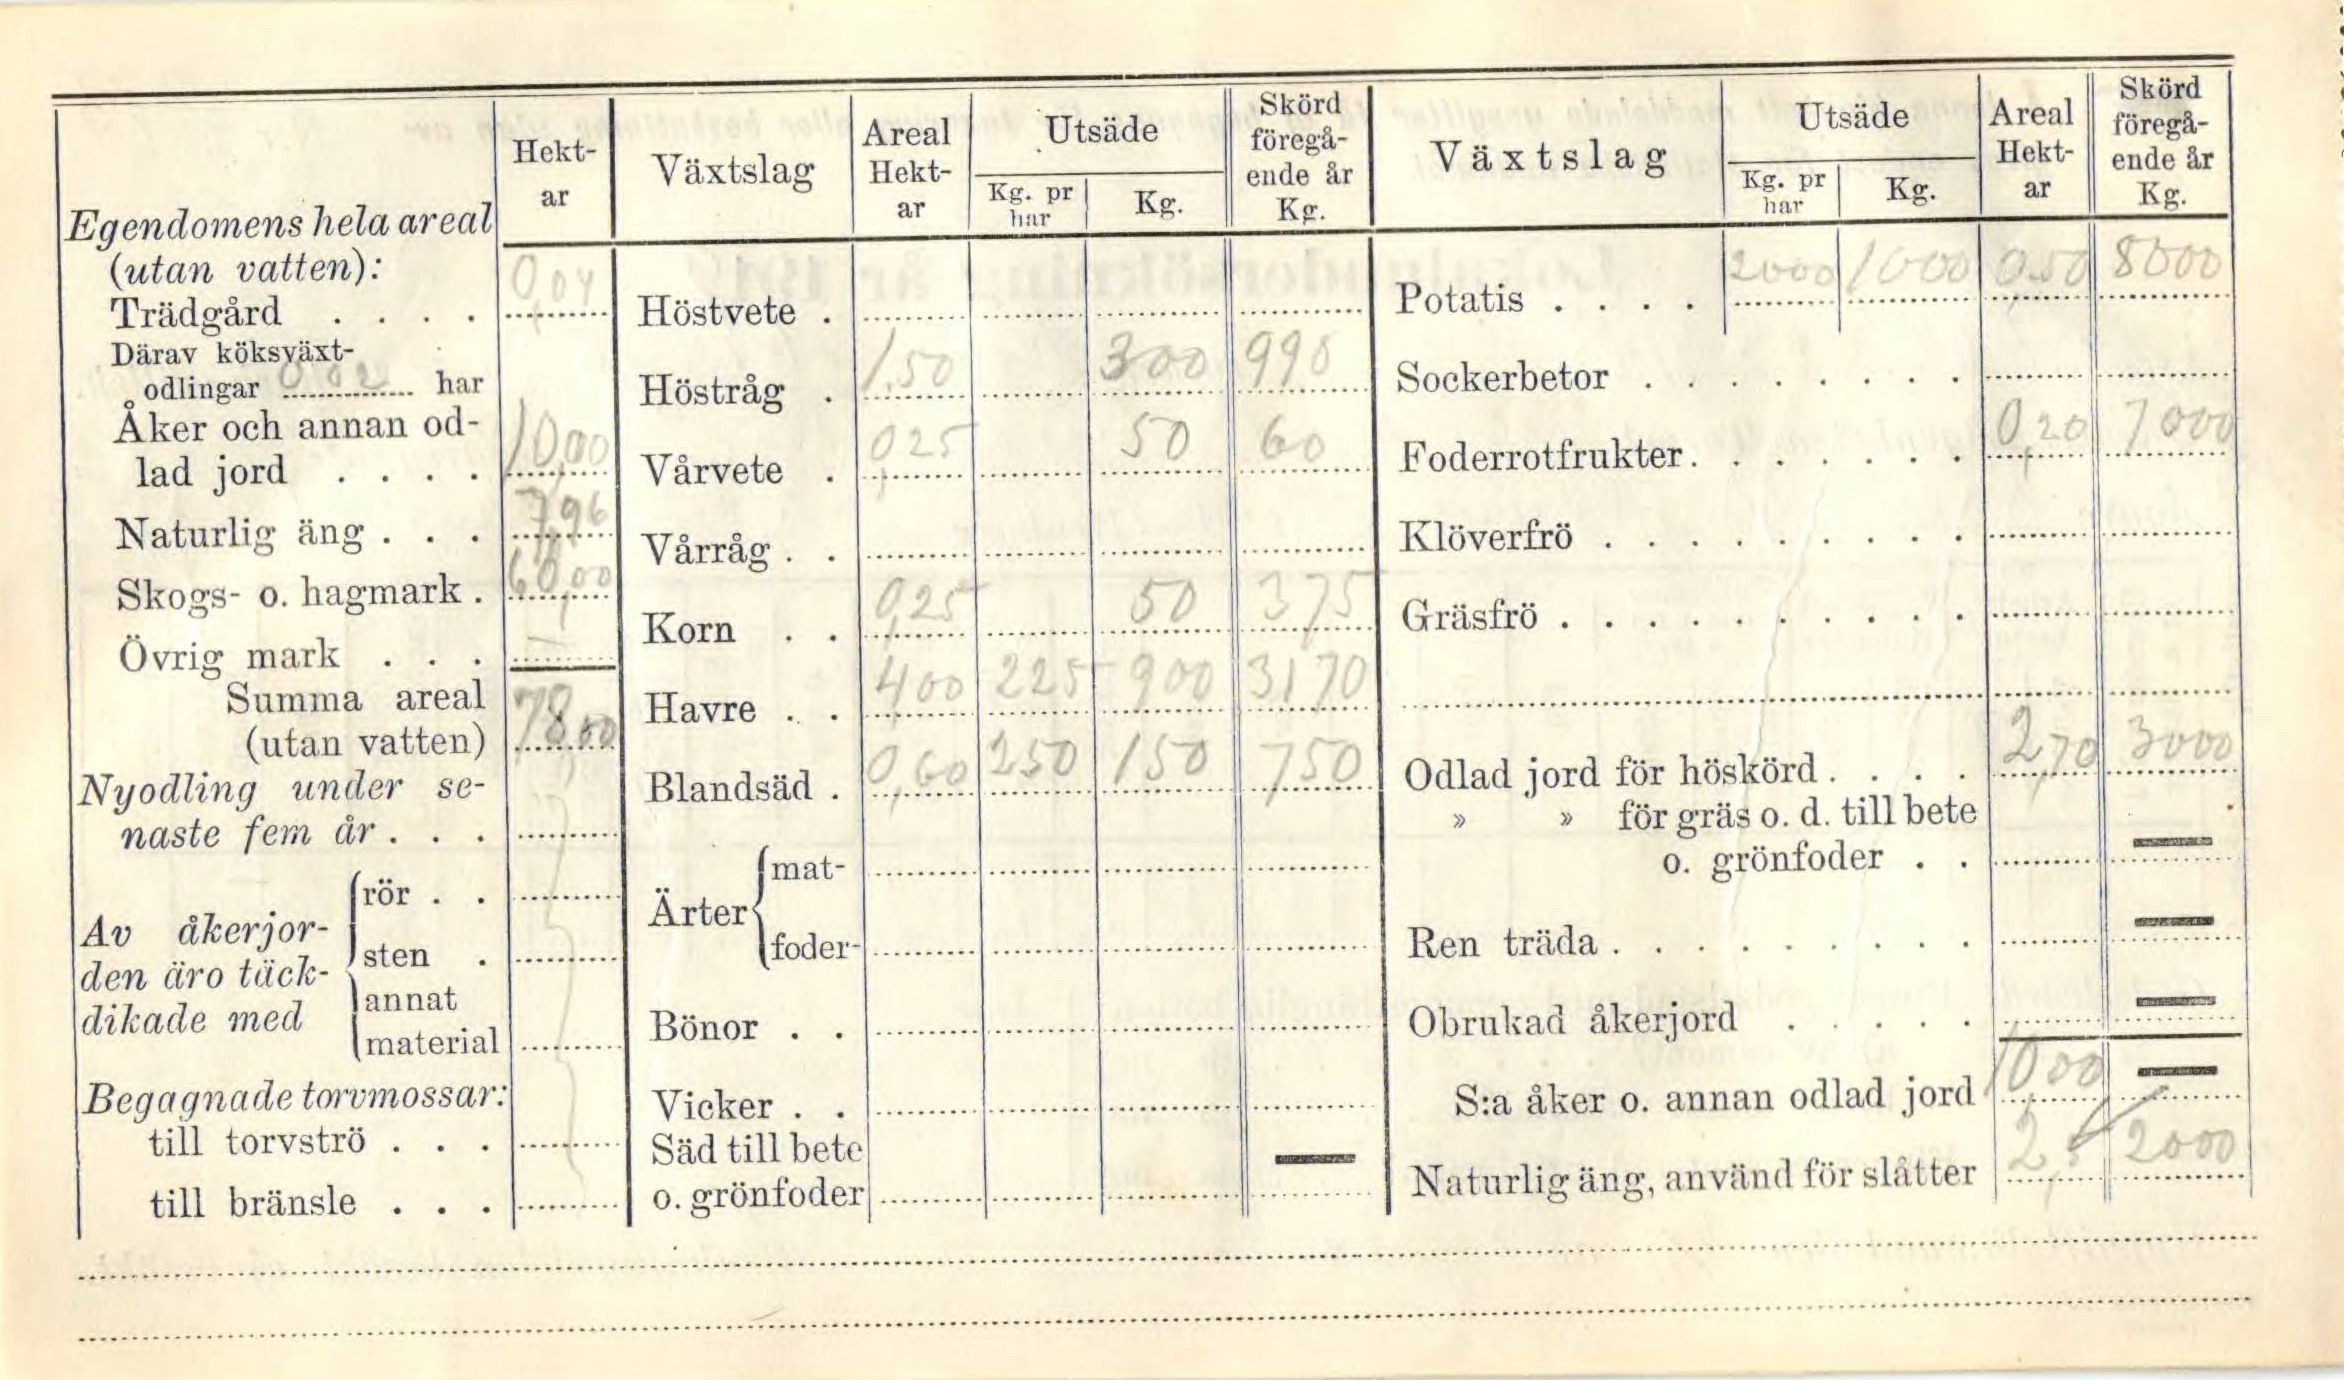 Egendomens hela areal
(utan vatten):
Hektar
Trädgård . . . . 0,04
Därav köksväxt-
odlingar 0,02 har
Åker och annan od-
lad jord . . . . 10,00
Naturlig äng . . . 7,96
Skogs- o. hagmark . 60,00
Övrig mark . . . —
Summa areal
(utan vatten) 78,00
Nyodling under se-
naste fem år . . .
Av åkerjor-
den äro täck-
dikade med
rör . .
sten .
annat
material
Begagnade torvmossar:
till torvströ . . .
till bränsle . . .
Växtslag
Areal
Hekt-
ar
Utsäde
Kg. pr
har
Kg.
Skörd
föregå-
ende år
Kg.
Höstvete .
Höstråg . 1,50 300 990
Vårvete . 0,25 50 60
Vårråg . .
Korn . . 0,25 50 375
Havre . . 4,00 225 900 3170
Blandsäd . 0,60 250 150 750
Ärter
mat-
foder-
Bönor . .
Vicker . .
Säd till bete
o. grönfoder —
Växtslag
Utsäde
Kg. pr
har
Kg.
Areal
Hekt-
ar
Skörd
föregå-
ende år
Kg.
Potatis . . . . 2000 1000 0,50 8000
Sockerbetor . . . . . . . .
Foderrotfrukter . . . . . . . 0,20 7000
Klöverfrö . . . . . . . . .
Gräsfrö . . . . . . . . . .
Odlad jord för höskörd . . . . 2,70 3000
» » för gräs o. d. till bete
o. grönfoder . . —
Ren träda . . . . . . . . . —
Obrukad åkerjord . . . . . —
S:a åker o. annan odlad jord 10,00 —
Naturlig äng, använd för slåtter 2,- 2000